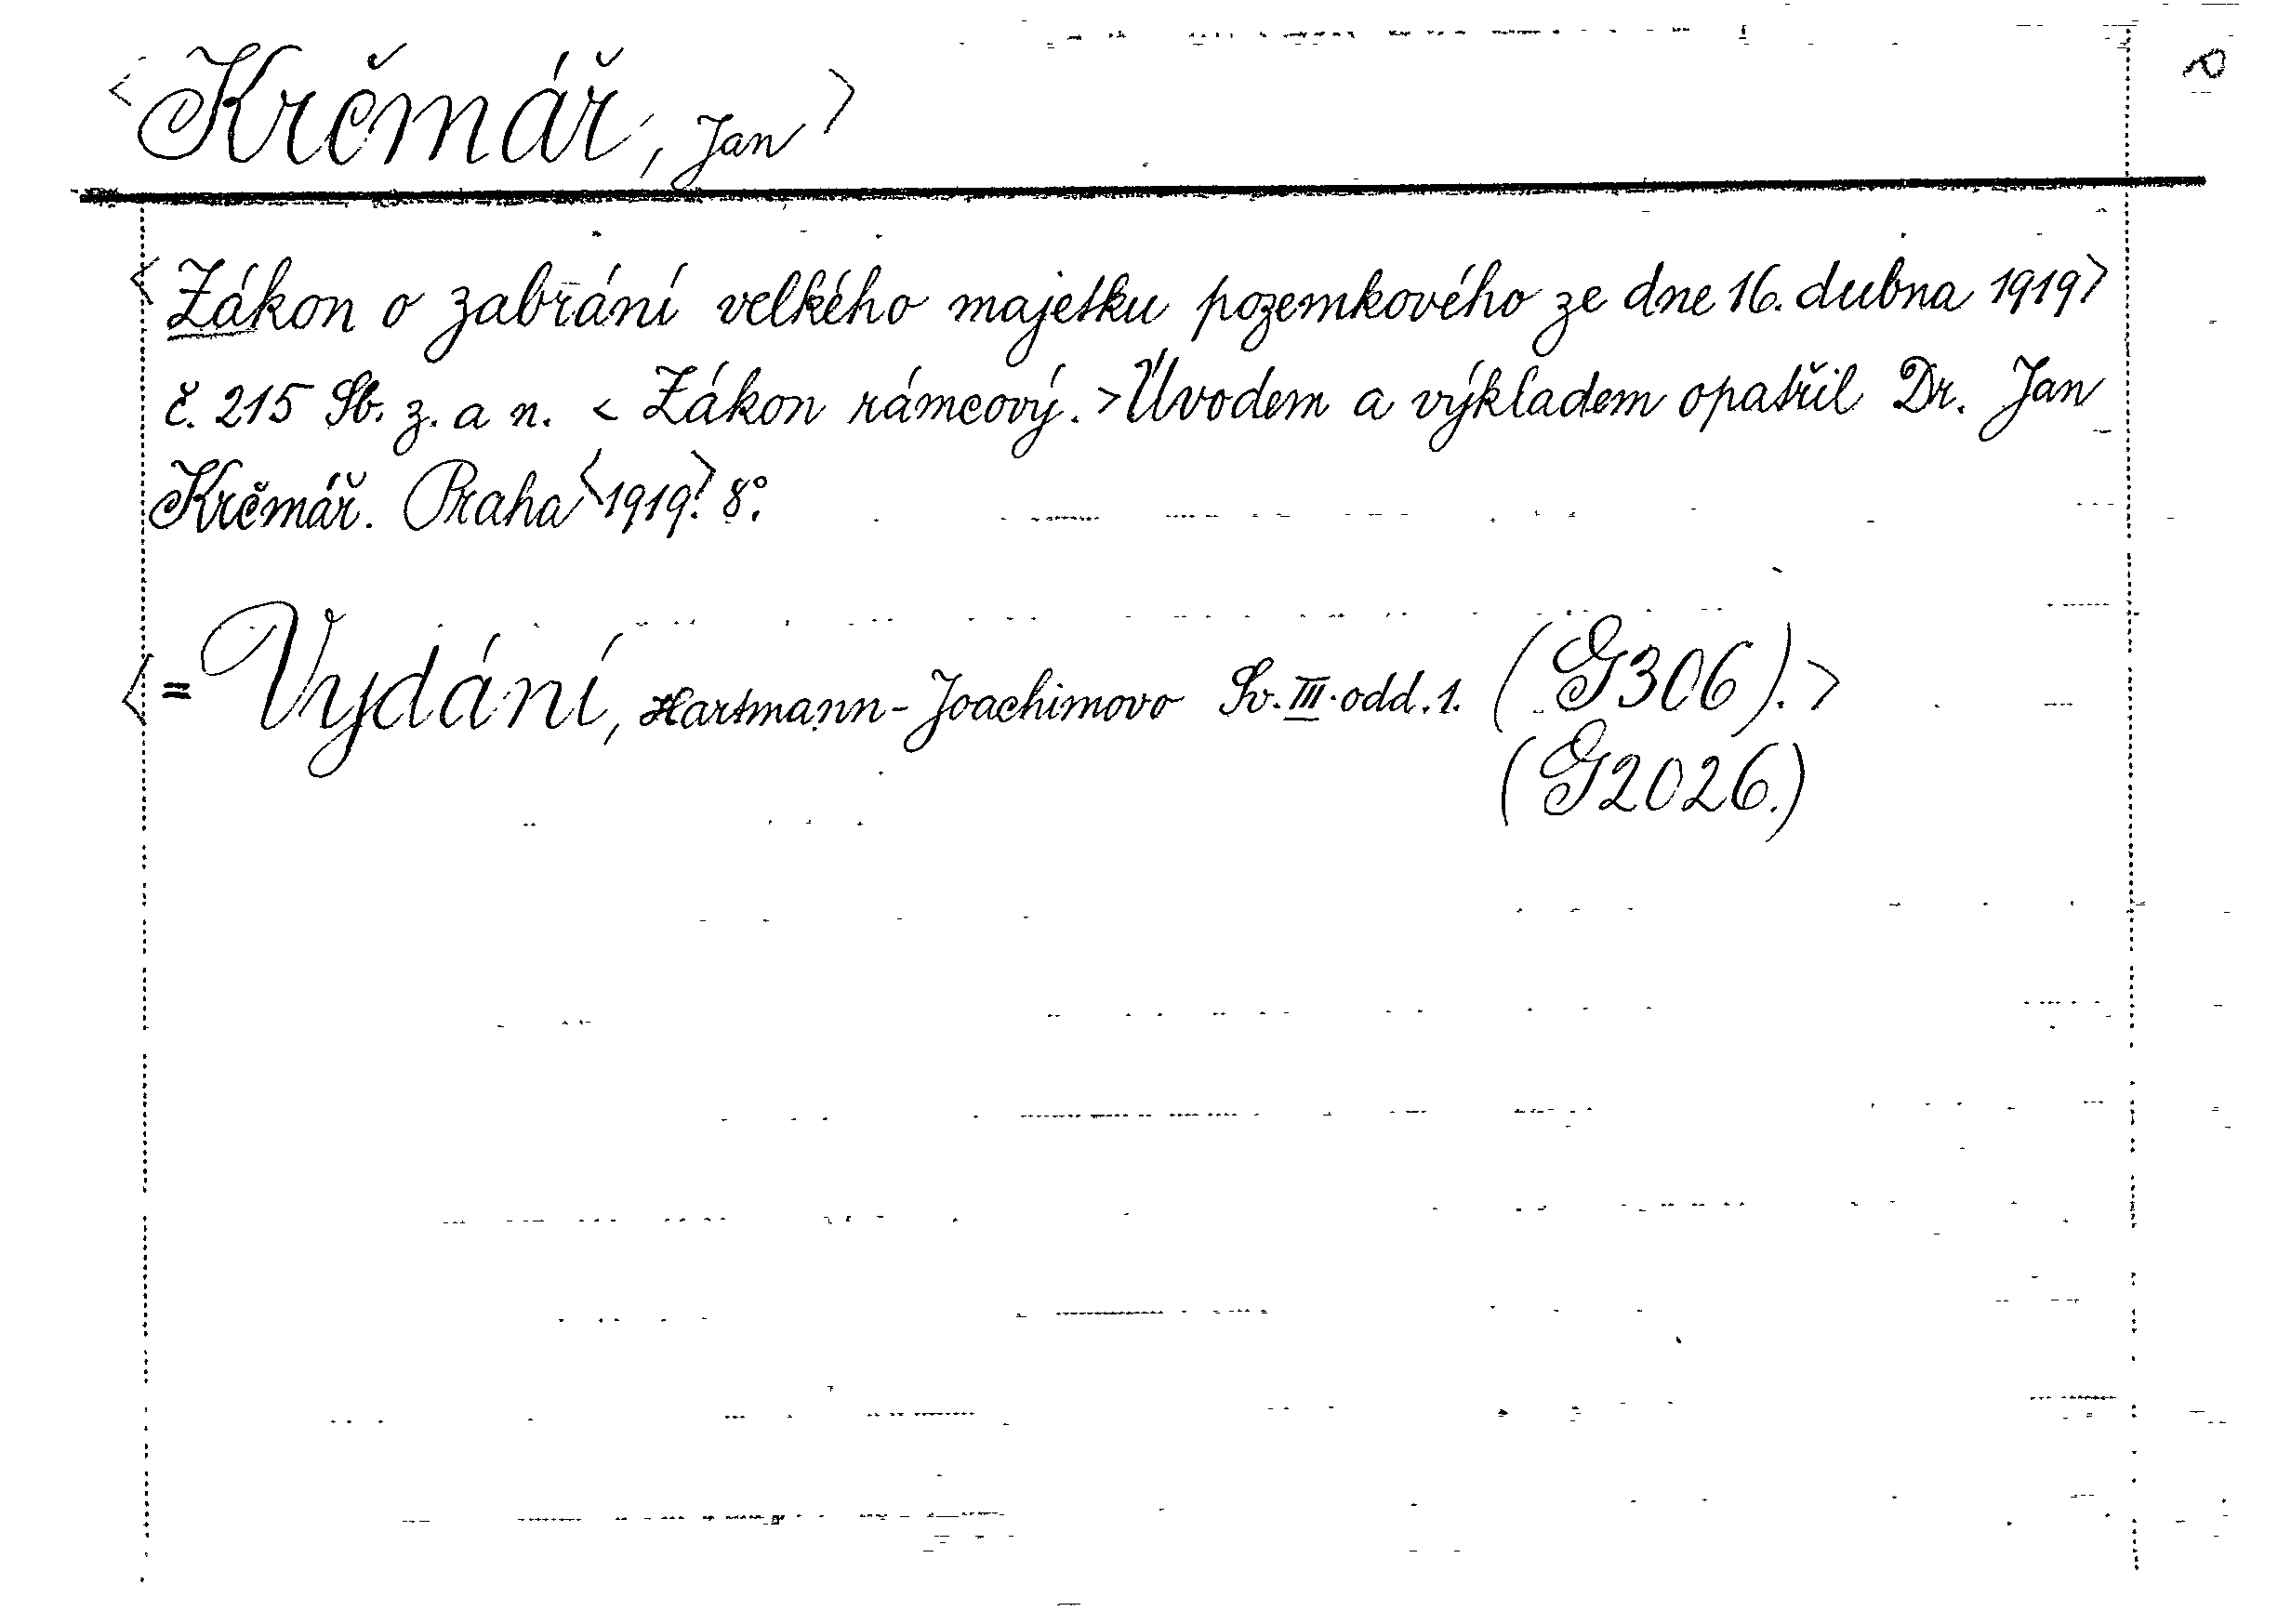 <Krčmář, Jan>
<Zákon o zabrání velkého majetku pozemkového ze dne 16. dubna 1919>
č. 215 Sb. z. a n. <Zákon rámcový.> Úvodem a výkladem opatřil Dr. Jan
Krčmář. Praha <1919>. 8°.
<= Vydání, Hartmann-Joachimovo Sv. III. odd. 1. (G306).>
(G2026.)